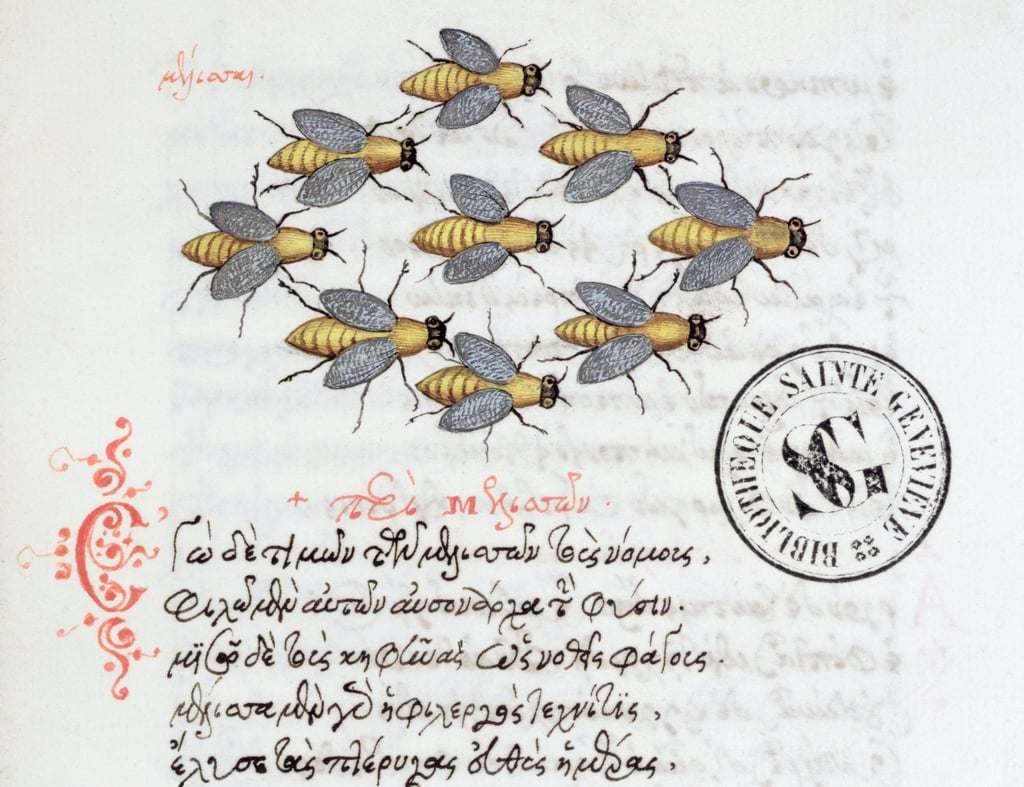 μέλισσαι.
+ περὶ μελισσῶν .
Ἐγὼ δὲ τιμῶν τῶν μελισσῶν τοὺς νόμους,
Φιλῶ μὲν αὐτῶν τὴν φύσιν.
μισῶ δὲ τοὺς κηφῆνας ὡς νόθους φάγους.
μέλισσα μὲν γὰρ ἡ φίλεργος τεχνίτις,
τὰς πτέρυγας ἡμέρας,
BIBLIOTHEQUE SAINTE GENEVIEVE
SG